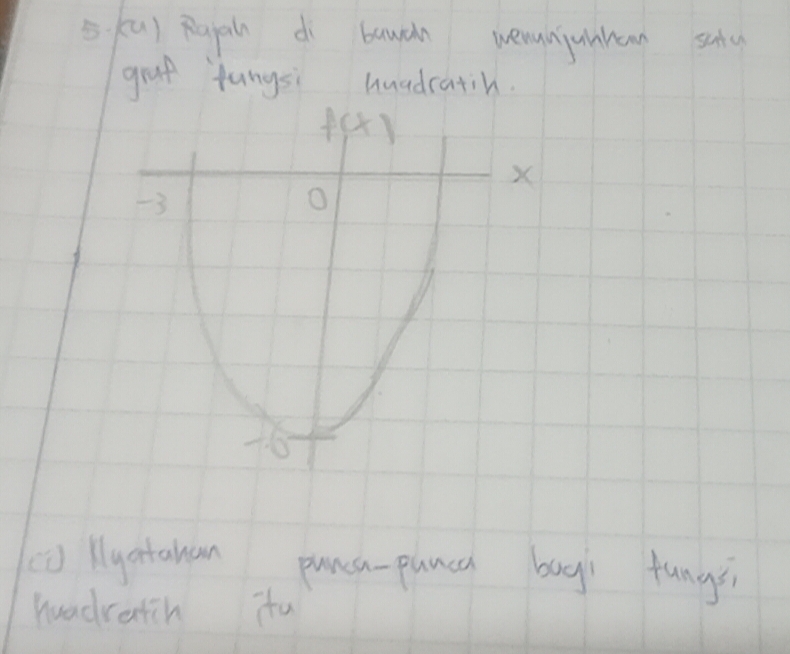 5. (a) Rajah di bawah menunjukkan satu
graf fungsi kuadratik.
f(x)
x
-3
0
-6
(i) Nyatakan punca-punca bagi fungsi
kuadratik itu